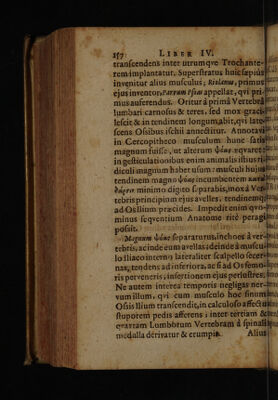 157 LIBER IV.
transcendens inter utrumqve Trochante-
rem implantatur. Superstratus huic sæpius
invenitur alius musculus; Riolanus, primus
ejus inventor, Parvum Psoin appellat, qvi pri-
mus auferendus. Oritur à primâ Vertebrâ
lumbari carnosus & teres, sed mox graci-
lescit & in tendinem longum abit, qvi late-
scens Ossibus ischii annectitur. Annotavi
in Cercopitheco musculum hunc satis
magnum fuisse, ut alterum ψόας æqvaret:
in gesticulationibus enim animalis istius ri-
diculi magnum habet usum: musculi hujus
tendinem magno ψόας incumbentem
minimo digito separabis, mox à Ver-
tebris principium ejus avelles, tendinemq;
ad Os Ilium præcides. Impedit enim qvo-
minus seqventium Anatome ritè peragi
possit.
Magnum ψόας separaturus, inchoes à ver-
tebris, ac inde eum avellas: deinde à muscu-
lo Iliaco interno lateraliter scalpello sece-
nas, tendens ad inferiora, ac si ad Os femo-
ris perveneris, insertionem ejus perlustres.
Ne autem interea temporis negligas ner-
vum illum, qvi cum musculo hoc sinum
Ossis Ilium transcendit, in calculoso affectu
stuporem pedis afferens; inter tertiam &
qvartam Lumborum Vertebram à spinali
medulla derivatur & erumpit.
Alius